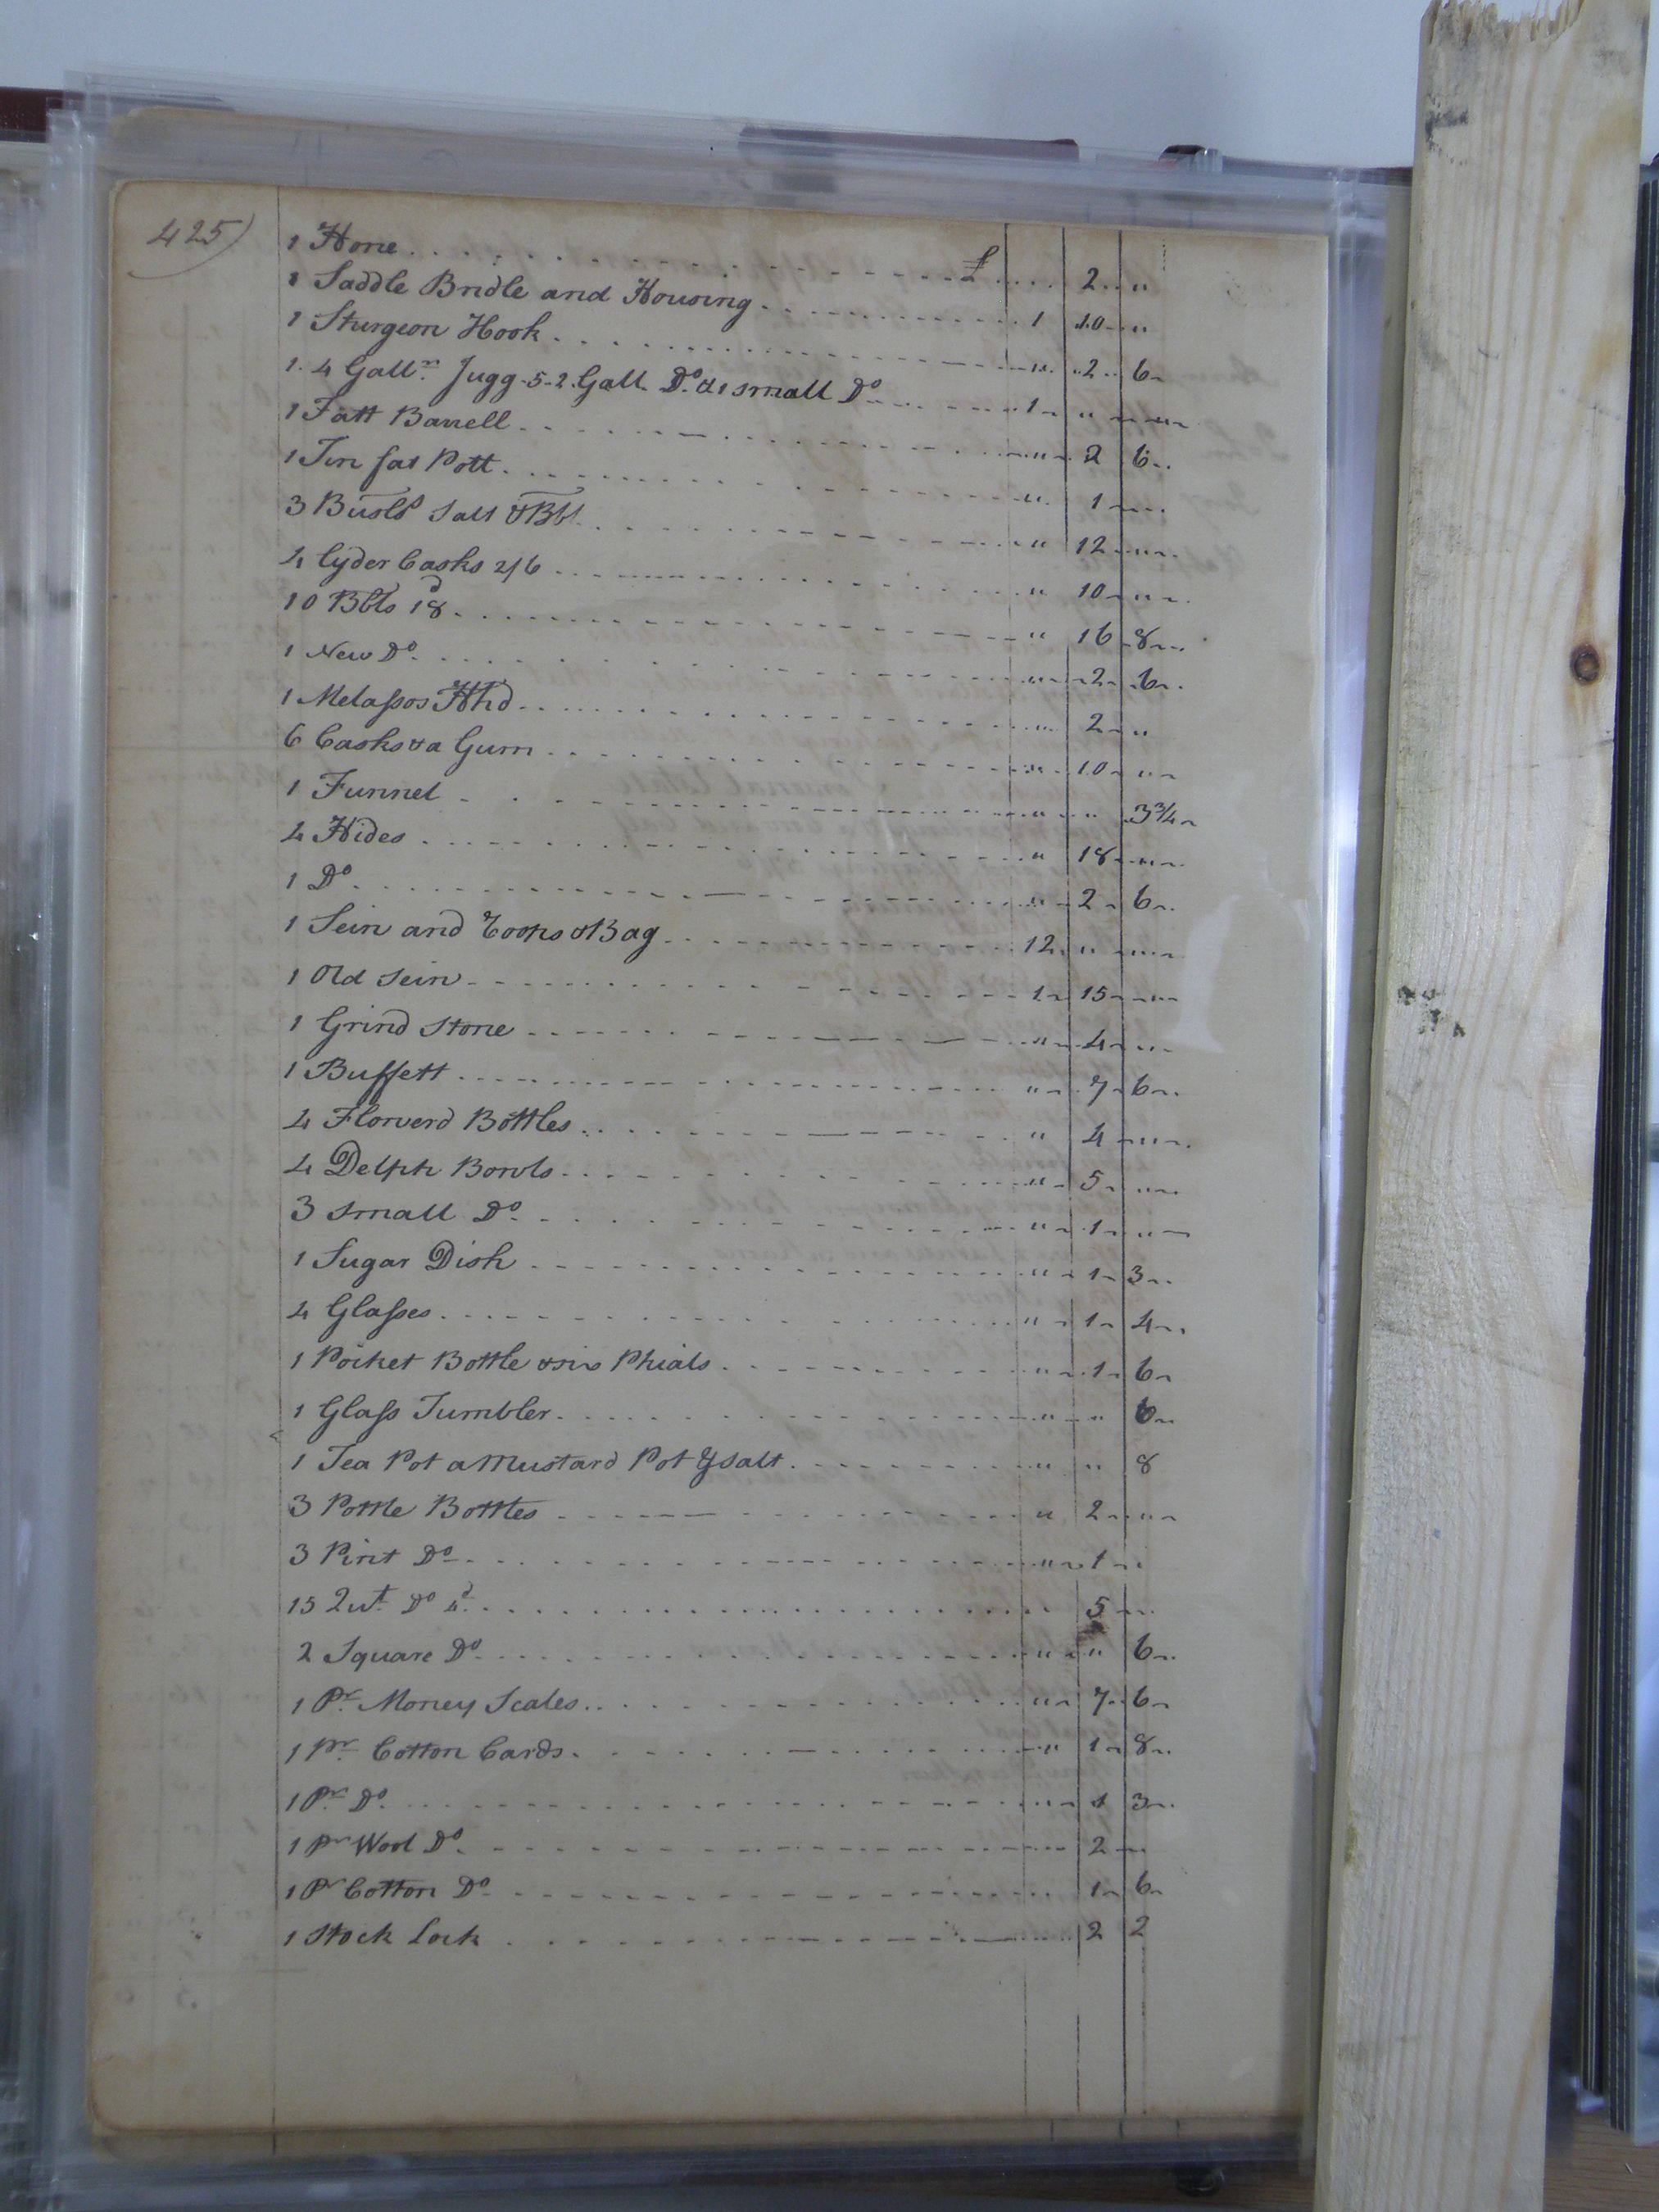 425)
1 Hone £ 2 "
1 Saddle Bridle and Housing 1 10 "
1 Sturgeon Hook " 2 6
1. 4 Gall.n Jugg. 5-2. Gall. Do. & 1 small Do 1 " "
1 Fatt Barrell " 2 6
1 Tin fat Pott " 1 "
3 Busls Salt & Bbl " 12 "
4 Cyder Casks 2/6 " 10 "
10 Bbls 18d " 16 8
1 New Do " 2 6
1 Melasses Hhd " 2 "
6 Casks & a Gum " 10 "
1 Funnel " " 3¾
4 Hides " 18 "
1 Do " 2 6
1 Sein and Roops & Bag 12 " "
1 Old Sein 1 15 "
1 Grind Stone " 4 "
1 Buffett " 7 6
4 Flowerd Bottles " 4 "
4 Delph Bowls " 5 "
3 small Do " 1 "
1 Sugar Dish " 1 3
4 Glasses " 1 4
1 Pocket Bottle & six Phials " 1 6
1 Glass Tumbler " " 6
1 Tea Pot a Mustard Pot & Salt " " 8
3 Pottle Bottles " 2 "
3 Pint Do " 1 "
15 Qut. Do 4d 5 "
2 Square Do " " 6
1 Pr. Money Scales " 7 6
1 Pr. Cotton Cards " 1 8
1 Pr. Do " 1 3
1 Pr Wool Do 2 "
1 Pr Cotton Do 1 6
1 Stock Lock 2 2